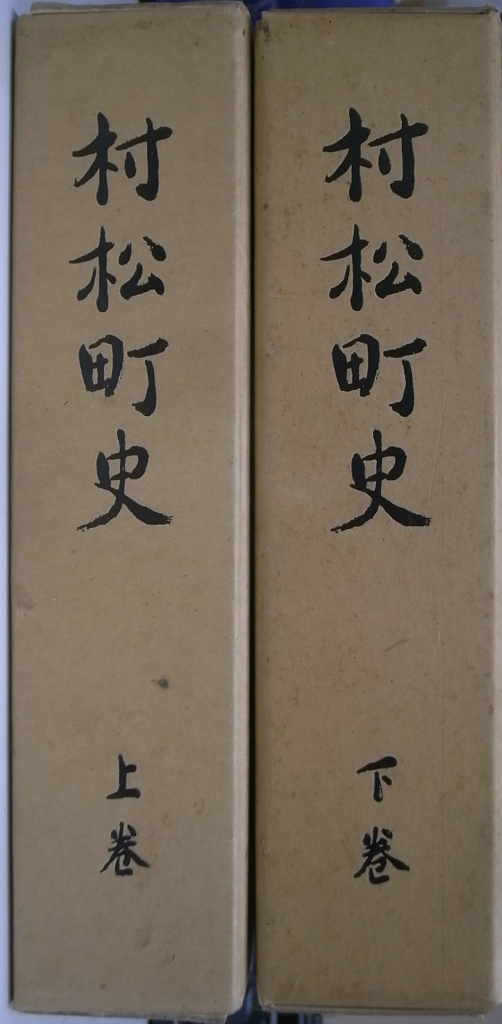 村松町史
上巻
村松町史
下巻